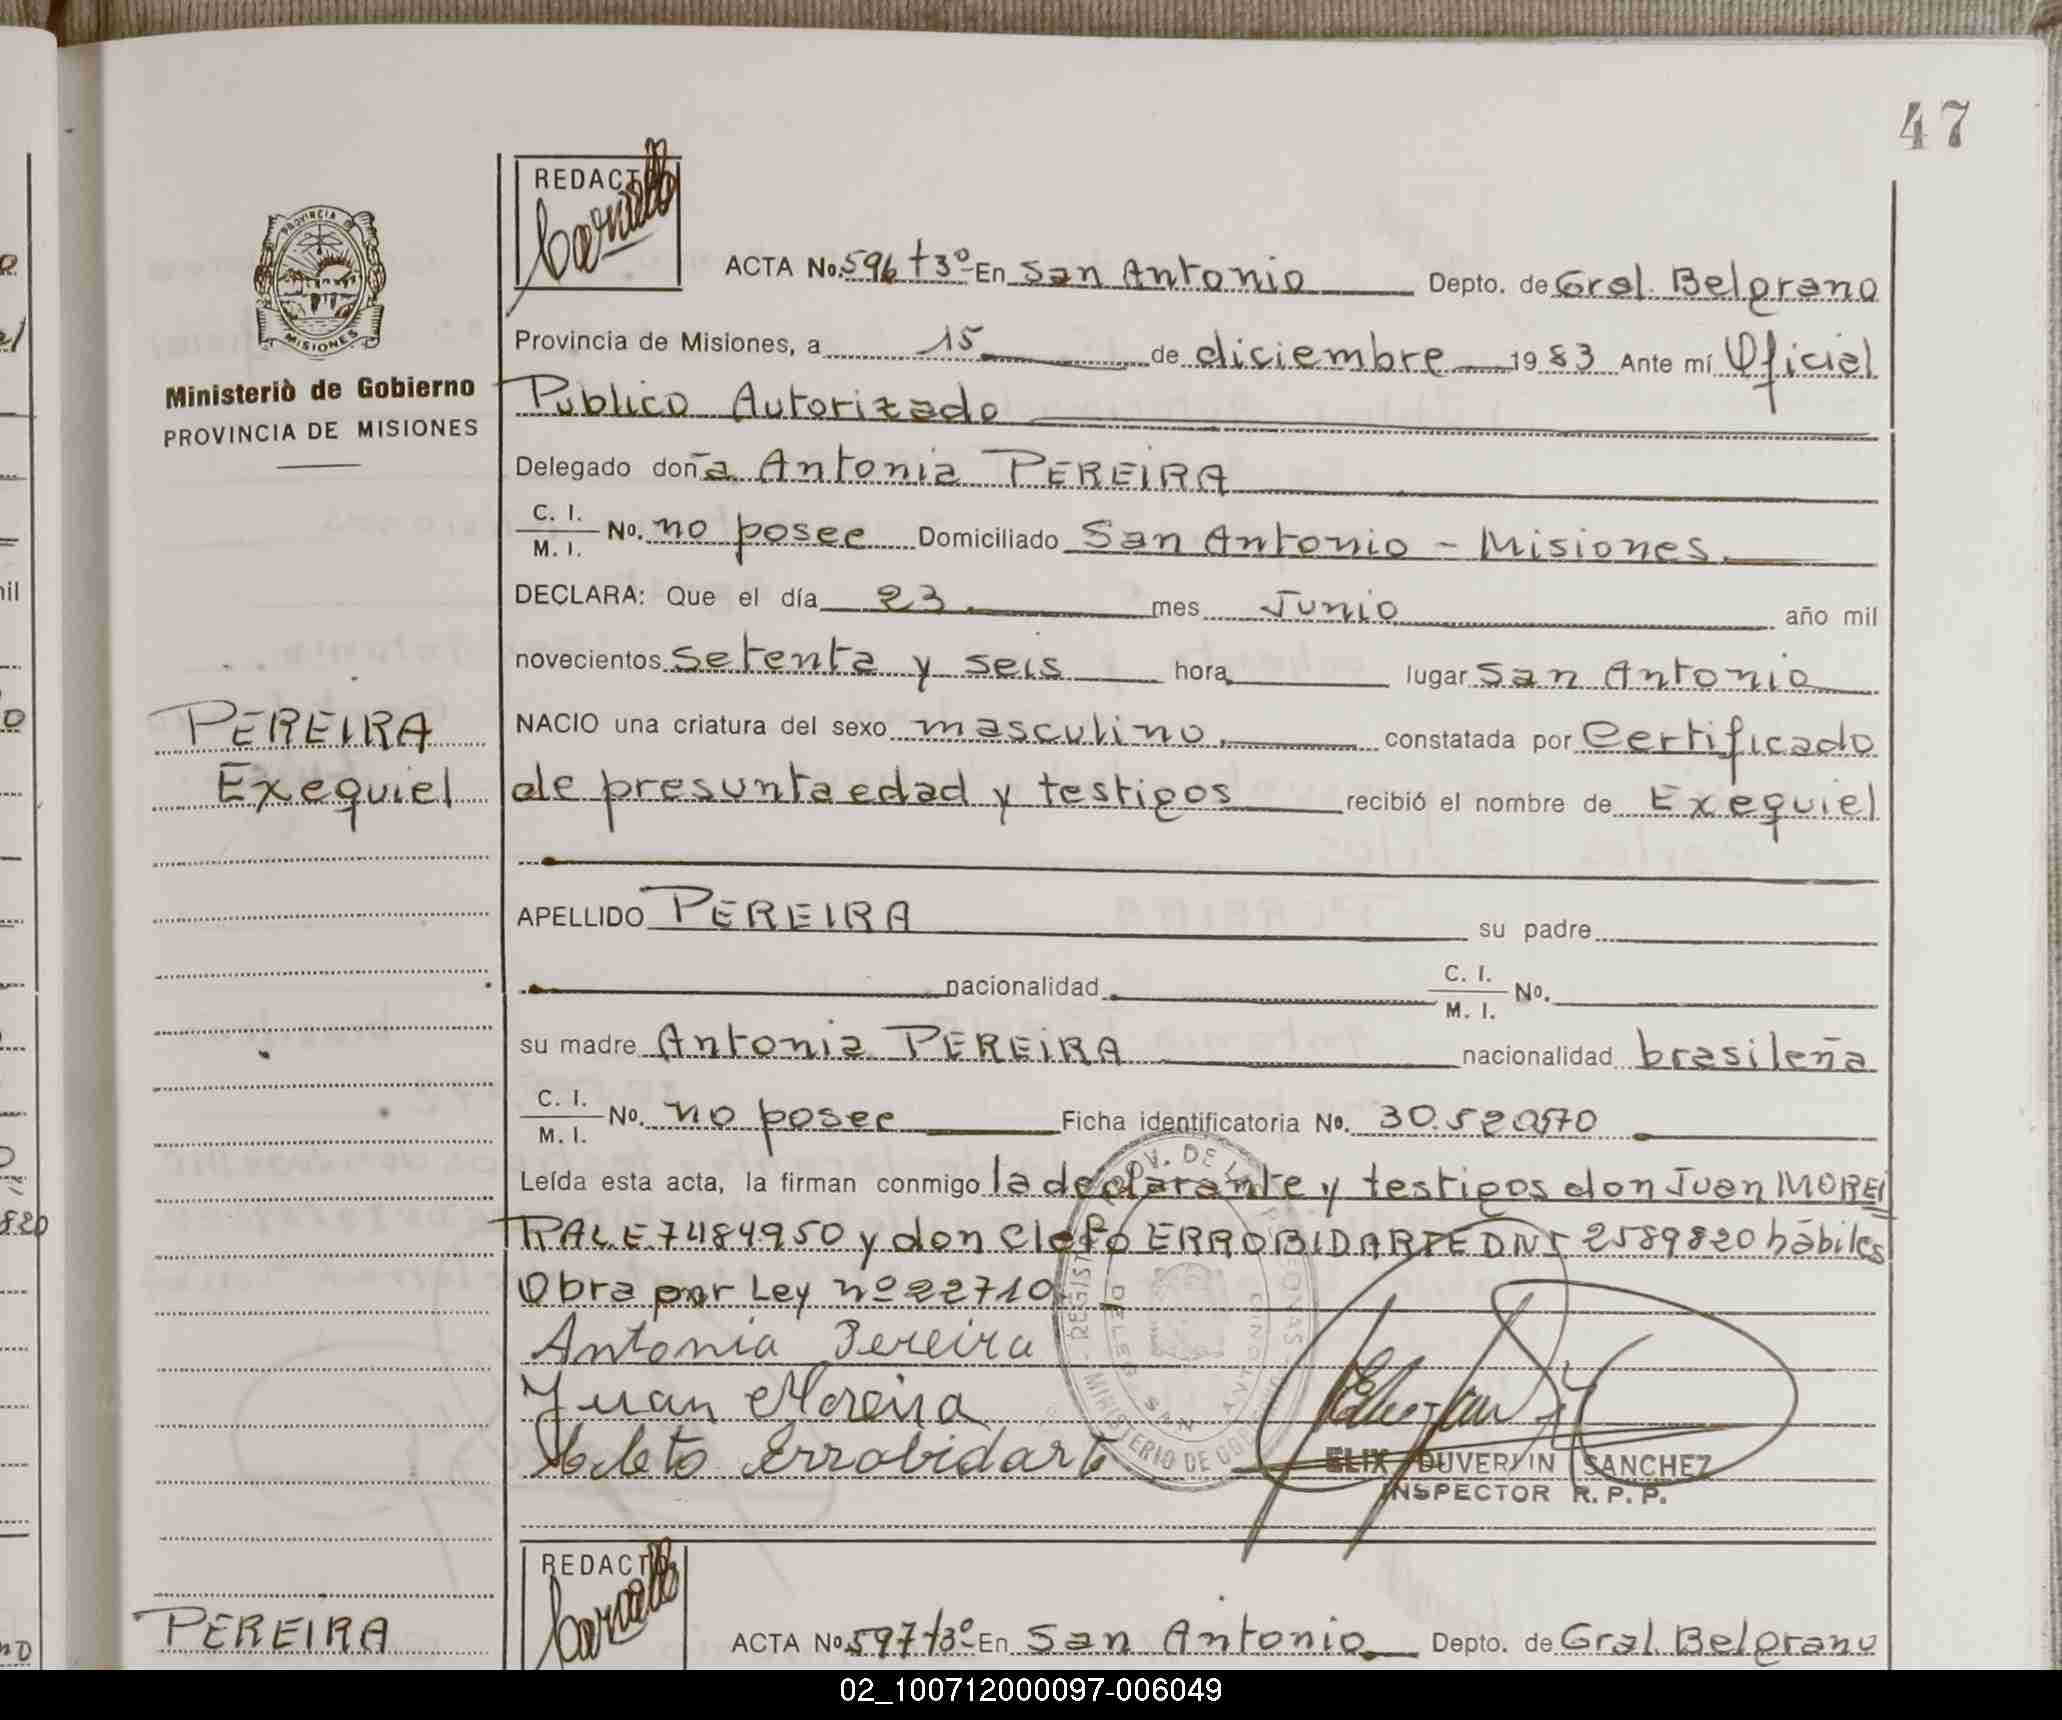 47
REDACTO
ACTA No. 596 t 3º En San Antonio Depto. de Gral. Belgrano
Provincia de Misiones, a 15 de diciembre 1983 Ante mí Oficial
Público Autorizado
Ministerio de Gobierno
PROVINCIA DE MISIONES
PROVINCIA DE MISIONES
Delegado doña Antonia PEREIRA
C. I. / M. I. No. no posee Domiciliado San Antonio - Misiones.
DECLARA: Que el día 23 mes Junio año mil
novecientos setenta y seis hora lugar San Antonio
PEREIRA
NACIO una criatura del sexo masculino, constatada por Certificado
Exequiel
de presunta edad y testigos recibió el nombre de Exequiel
APELLIDO PEREIRA su padre
nacionalidad C. I. / M. I. No.
su madre Antonia PEREIRA nacionalidad brasileña
C. I. / M. I. No. no posee Ficha identificatoria No.
Leída esta acta, la firman conmigo la declarante y testigos don Juan MOREI
RA L.E 7484950 y don Cleto ERROBIDARTE DNI 2589820 hábiles
Obra por Ley nº 22710
Antonia Pereira
Juan Moreira
Cleto Errobidart
ELIX DUVERYIN SANCHEZ
INSPECTOR R. P. P.
REDACTO
PEREIRA
ACTA No. 597 t 3º En San Antonio Depto. de Gral. Belgrano
02_100712000097-006049